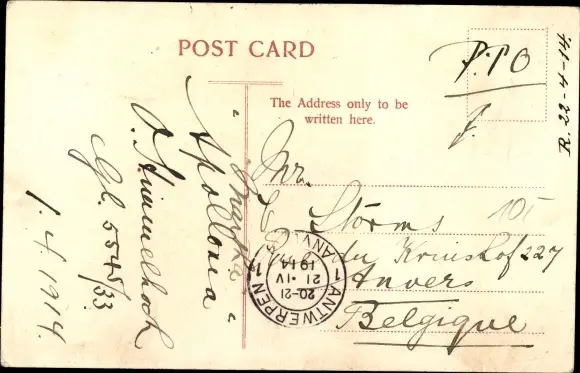 POST CARD
P.T.O
R 22-4-14.
The Address only to be
written here.
Mr.
Storms
Kruishof 227
Anvers
Belgique
105
1 ANTWERPEN 1 ANVERS
20-21
21 · IV
1914
"Marka
Apollonia"
O. Himmelhoch
Gl. 5545/33
1. 4. 1914.